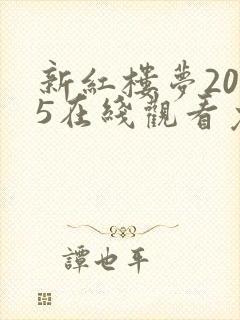 新紅樓夢20
5在綫觀看
譚也平